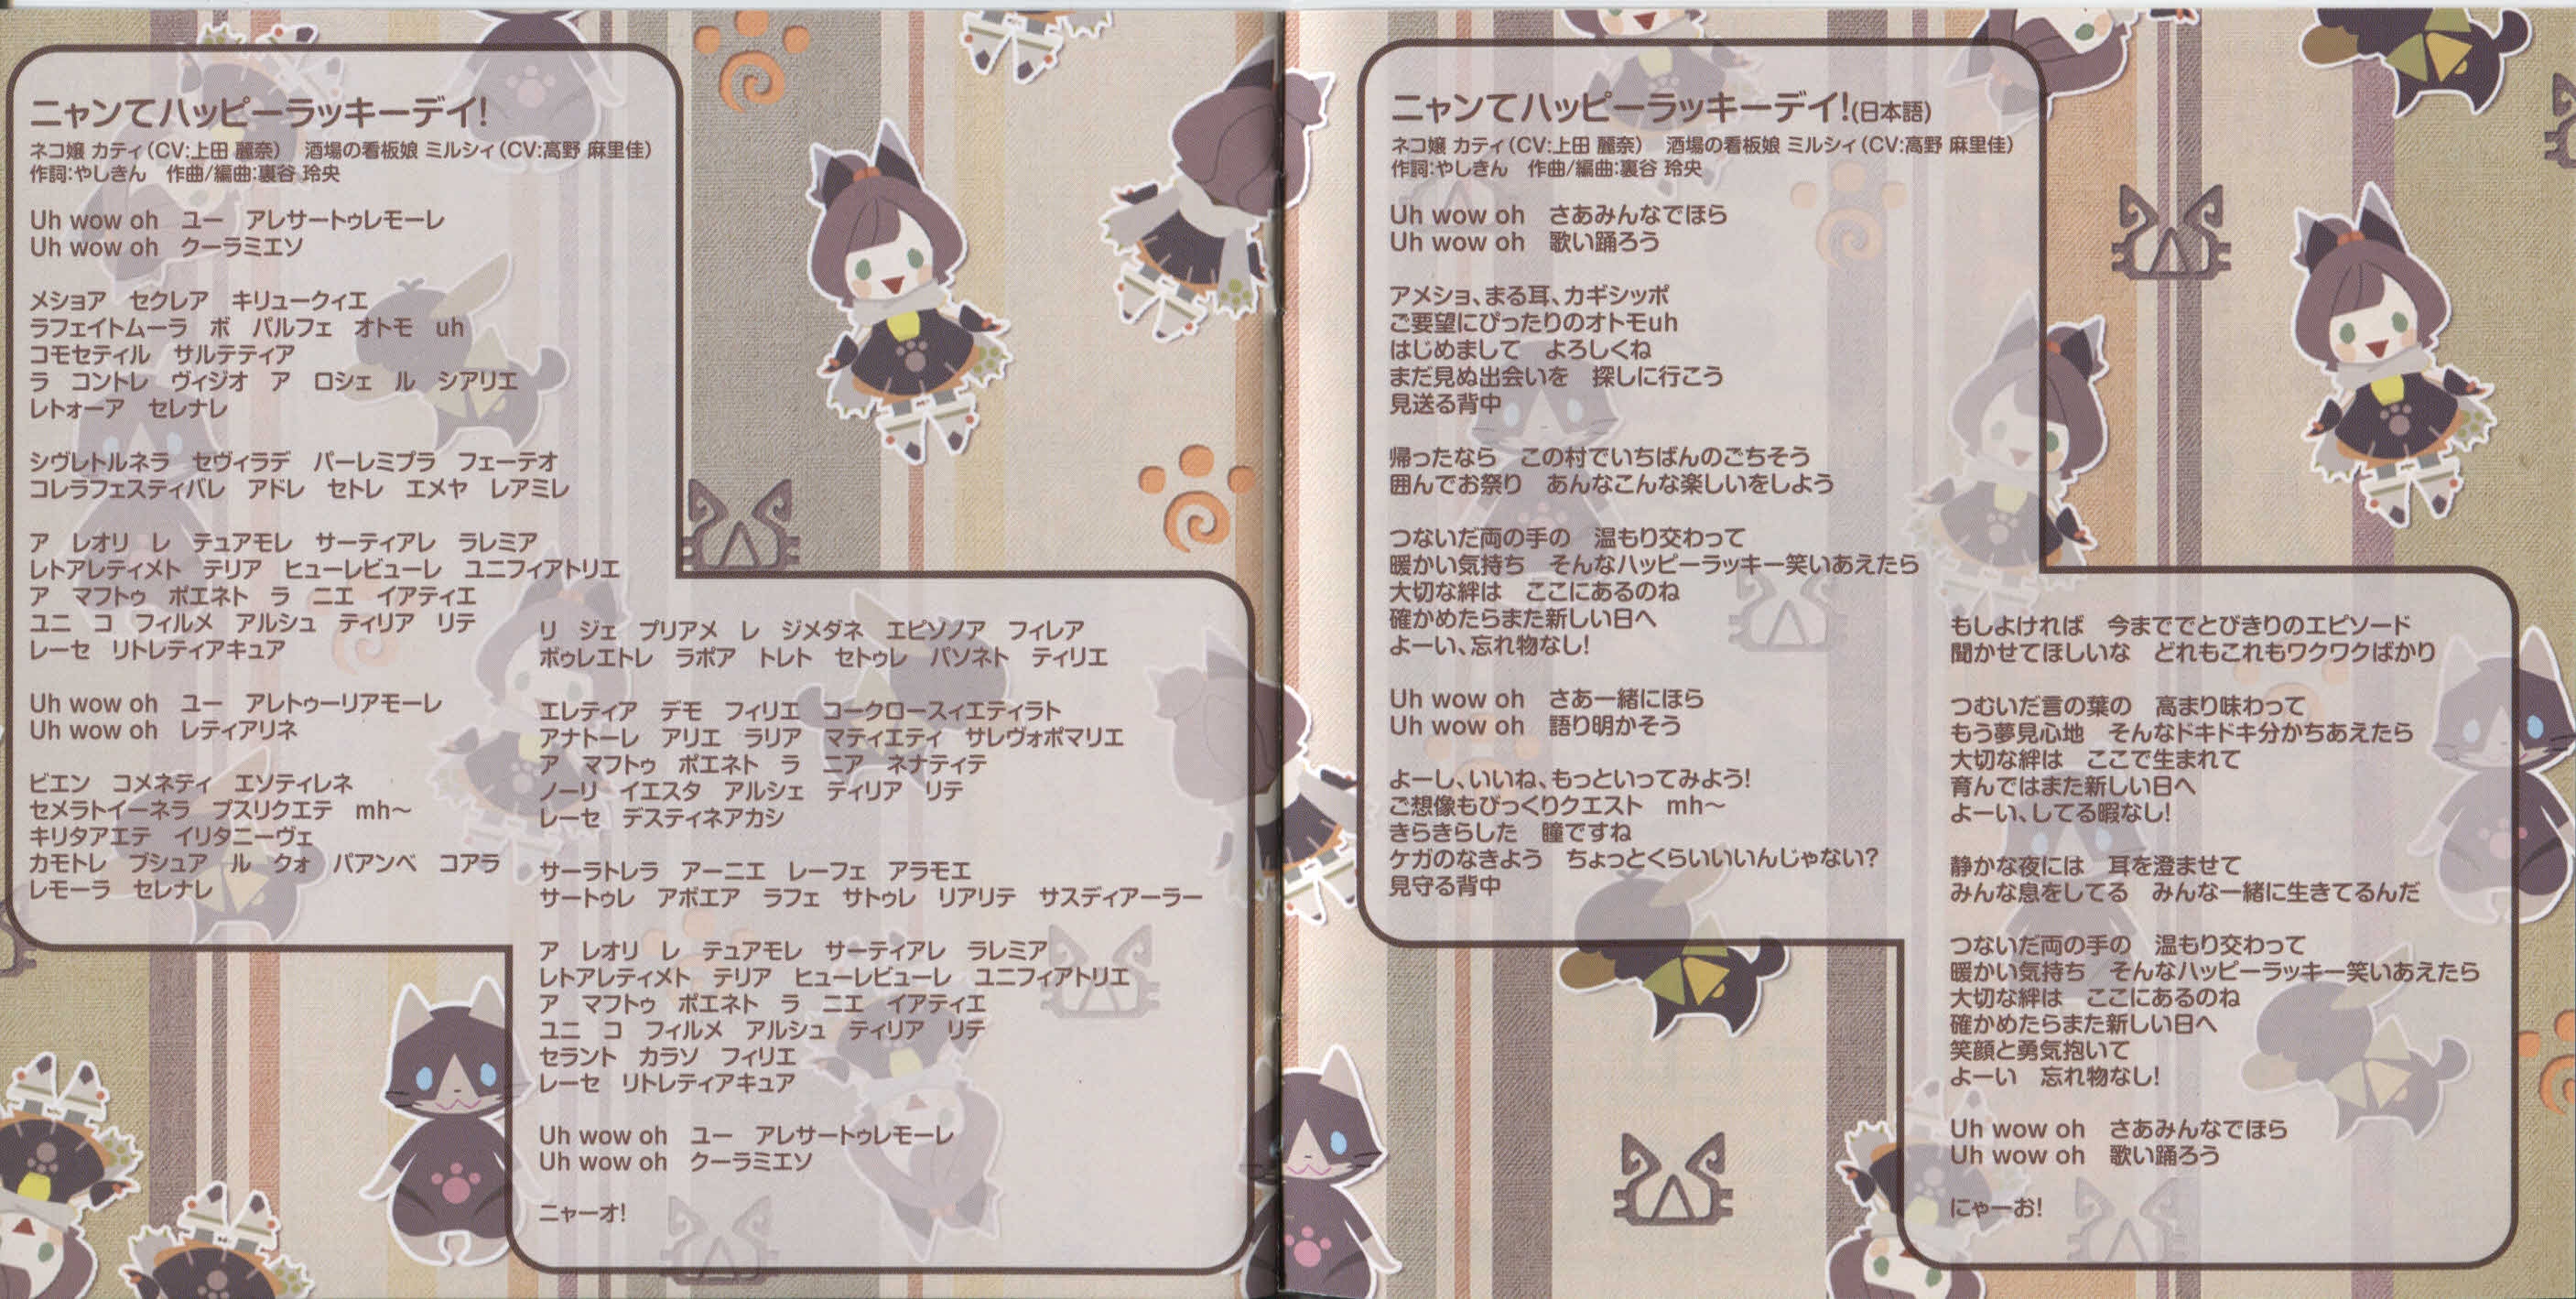 ニャンてハッピーラッキーデイ!
ネコ嬢 カティ(CV:上田 麗奈)　酒場の看板娘 ミルシィ(CV:高野 麻里佳)
作詞:やしきん　作曲/編曲:裏谷 玲央
Uh wow oh　ユー　アレサートゥレモーレ
Uh wow oh　クーラミエソ
メショア　セクレア　キリュークィエ
ラフェイトムーラ　ボ　パルフェ　オトモ　uh
コモセティル　サルテティア
ラ　コントレ　ヴィジオ　ア　ロシェ　ル　シアリエ
レトォーア　セレナレ
シヴレトルネラ　セヴィラデ　パーレミプラ　フェーテオ
コレラフェスティバレ　アドレ　セトレ　エメヤ　レアミレ
ア　レオリ　レ　テュアモレ　サーティアレ　ラレミア
レトアレティメト　テリア　ヒューレビューレ　ユニフィアトリエ
ア　マフトゥ　ポエネト　ラ　ニエ　イアティエ
ユニ　コ　フィルメ　アルシュ　ティリア　リテ
レーセ　リトレティアキュア
Uh wow oh　ユー　アレトゥーリアモーレ
Uh wow oh　レティアリネ
ビエン　コメネティ　エソティレネ
セメラトイーネラ　プスリクエテ　mh〜
キリタアエテ　イリタニーヴェ
カモトレ　プシュア　ル　クォ　パアンベ　コアラ
レモーラ　セレナレ
リ　ジェ　プリアメ　レ　ジメダネ　エピソノア　フィレア
ボゥレエトレ　ラポア　トレト　セトゥレ　パソネト　ティリエ
エレティア　デモ　フィリエ　コークロースィエティラト
アナトーレ　アリエ　ラリア　マティエティ　サレヴォポマリエ
ア　マフトゥ　ポエネト　ラ　ニア　ネナティテ
ノーリ　イエスタ　アルシェ　ティリア　リテ
レーセ　デスティネアカシ
サーラトレラ　アーニエ　レーフェ　アラモエ
サートゥレ　アボエア　ラフェ　サトゥレ　リアリテ　サスディアーラー
ア　レオリ　レ　テュアモレ　サーティアレ　ラレミア
レトアレティメト　テリア　ヒューレビューレ　ユニフィアトリエ
ア　マフトゥ　ポエネト　ラ　ニエ　イアティエ
ユニ　コ　フィルメ　アルシュ　ティリア　リテ
セラント　カラソ　フィリエ
レーセ　リトレティアキュア
Uh wow oh　ユー　アレサートゥレモーレ
Uh wow oh　クーラミエソ
ニャーオ!
ニャンてハッピーラッキーデイ!(日本語)
ネコ嬢 カティ(CV:上田 麗奈)　酒場の看板娘 ミルシィ(CV:高野 麻里佳)
作詞:やしきん　作曲/編曲:裏谷 玲央
Uh wow oh　さあみんなでほら
Uh wow oh　歌い踊ろう
アメショ、まる耳、カギシッポ
ご要望にぴったりのオトモuh
はじめまして　よろしくね
まだ見ぬ出会いを　探しに行こう
見送る背中
帰ったなら　この村でいちばんのごちそう
囲んでお祭り　あんなこんな楽しいをしよう
つないだ両の手の　温もり交わって
暖かい気持ち　そんなハッピーラッキー笑いあえたら
大切な絆は　ここにあるのね
確かめたらまた新しい日へ
よーい、忘れ物なし!
Uh wow oh　さあ一緒にほら
Uh wow oh　語り明かそう
よーし、いいね、もっといってみよう!
ご想像もびっくりクエスト　mh〜
きらきらした　瞳ですね
ケガのなきよう　ちょっとくらいいいんじゃない?
見守る背中
もしよければ　今まででとびきりのエピソード
聞かせてほしいな　どれもこれもワクワクばかり
つむいだ言の葉の　高まり味わって
もう夢見心地　そんなドキドキ分かちあえたら
大切な絆は　ここで生まれて
育んではまた新しい日へ
よーい、してる暇なし!
静かな夜には　耳を澄ませて
みんな息をしてる　みんな一緒に生きてるんだ
つないだ両の手の　温もり交わって
暖かい気持ち　そんなハッピーラッキー笑いあえたら
大切な絆は　ここにあるのね
確かめたらまた新しい日へ
笑顔と勇気抱いて
よーい　忘れ物なし!
Uh wow oh　さあみんなでほら
Uh wow oh　歌い踊ろう
にゃーお!